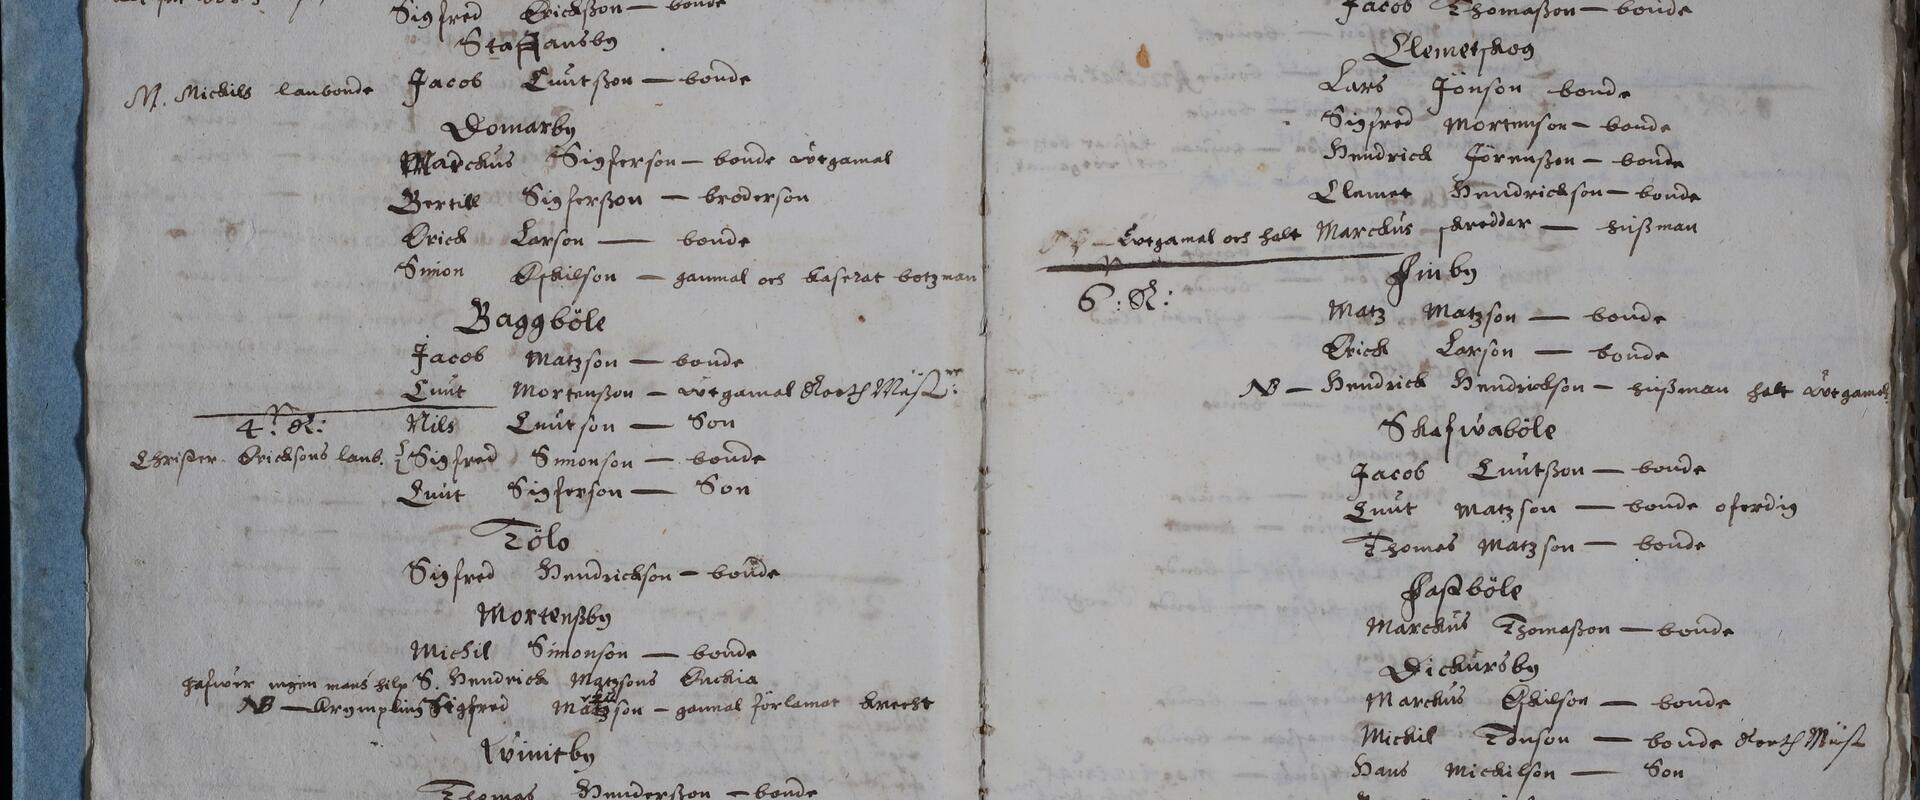 Sigfred Erickßon — bonde
Staffansby
M. Michils lanbonde Jacob Cnutßon — bonde
Domarby
Marckus Sigferson — bonde uvtgamal
Bertill Sigferßon — broderson
Erick Larson — bonde
Simon Eskilson — gammal och kaserat botzman
Baggböle
Jacob Matzson — bonde
Cnut Mortenßon — uvtgamal
4: R: Nils Cnutson — Son
Christer Ericksons lanb. Sigfred Simonson — bonde
Cnut Sigferson — Son
Tölo
Sigfred Hendrickson — bonde
Mortenßby
Michil Simonson — bonde
hafwer ingen mans hilp S. Hendrick Matzsons Enckia
NB — Krympling Sigfred Matzson — gammal förlamat knecht
Qvinitby
Thomas Henderßon — bonde
Jacob Thomaßon — bonde
Clemetskog
Lars Jönson bonde
Sigfred Mortenson — bonde
Hendrick Jörenßon — bonde
Clemet Hendrickson — bonde
Uvtgamal och halt Marckus skreddar — hußman
Finby
6: R: Matz Matzson — bonde
Erick Larson — bonde
NB — Hendrick Hendrickson — hußman halt uvtgamal
Skafwaböle
Jacob Cnutßon — bonde
Cnut Matzson — bonde oferdig
Thomas Matzson — bonde
Fastböle
Marckus Thomaßon — bonde
Dickursby
Marckus Eskilson — bonde
Michil Tonson — bonde
Hans Michilson — Son